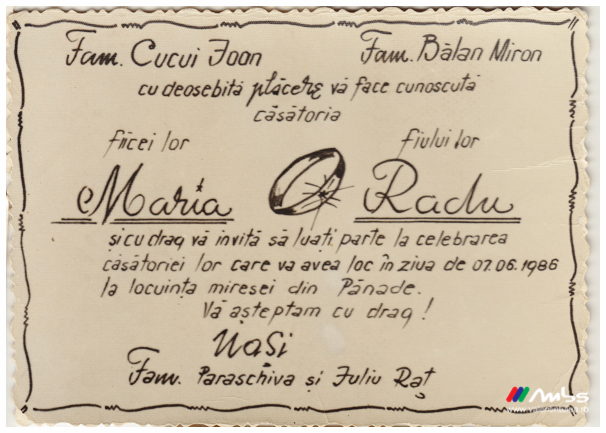 Fam. Cucui Ioan Fam. Bălan Miron
cu deosebită plăcere vă face cunoscută
căsătoria
fiicei lor fiului lor
Maria Radu
și cu drag vă invită să luați parte la celebrarea
căsătoriei lor care va avea loc în ziua de 07.06.1986
la locuința miresei din Pănade.
Vă așteptam cu drag!
Nași
Fam. Paraschiva și Iuliu Raț
mbs